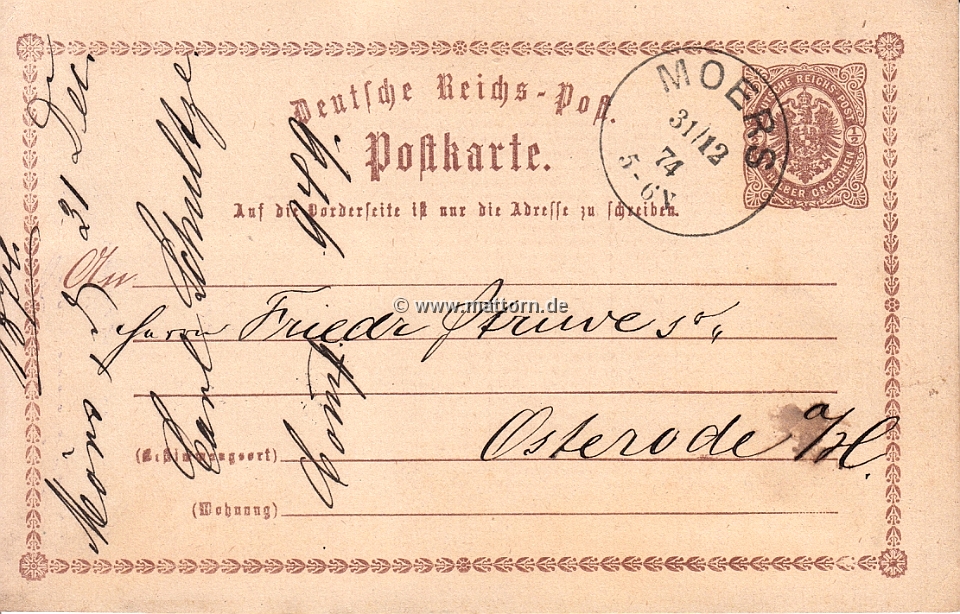 Deutsche Reichs-Post.
Postkarte.
Auf die Vorderseite ist nur die Adresse zu schreiben.
MOERS
31/12
74
5-6
DEUTSCHE REICHS-POST
GROSCHEN
An
© www.mattorn.de
Herrn Friedr Struve sr.,
Osterode a/H.
(Bestimmungsort)
(Wohnung)
Mörs d 31 Dec.
Carl Schultze
949.